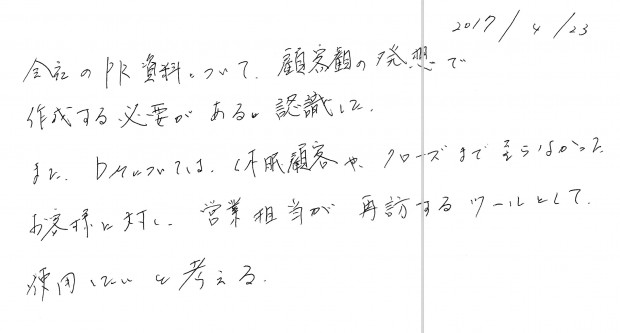 2017/4/23
会社のPR資料について、顧客観の発想で
作成する必要がある。認識した。
また、DMについては、休眠顧客や、クローズまで至らなかった
お客様に対し、営業担当が再訪するツールとして、
使用したいと考える。